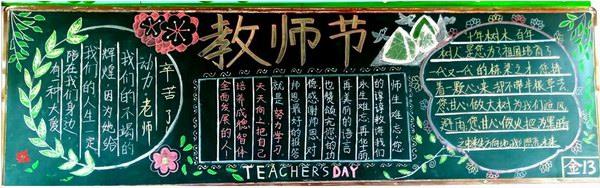 教师节
有一种大爱
陪在我们身边
我们的人生一定
辉煌因为他给
我们的不竭的
动力 老师
辛苦了
师生难忘,您
的谆谆教诲我们
永生难忘,再华丽
再美丽的语言
也赞颂不完您的功
德感谢师恩对
师恩最好的报答
就是努力学习
天天向上把自己
培养成德智体
全面发展的人
TEACHER'S DAY
十年树木,百年
树人是您为了祖国培育了
一代又一代的栋梁之才,您捧
着一颗心来,我不带半根草去
您甘心做大树为我们遮风
挡雨您甘心做火把为我们
金13